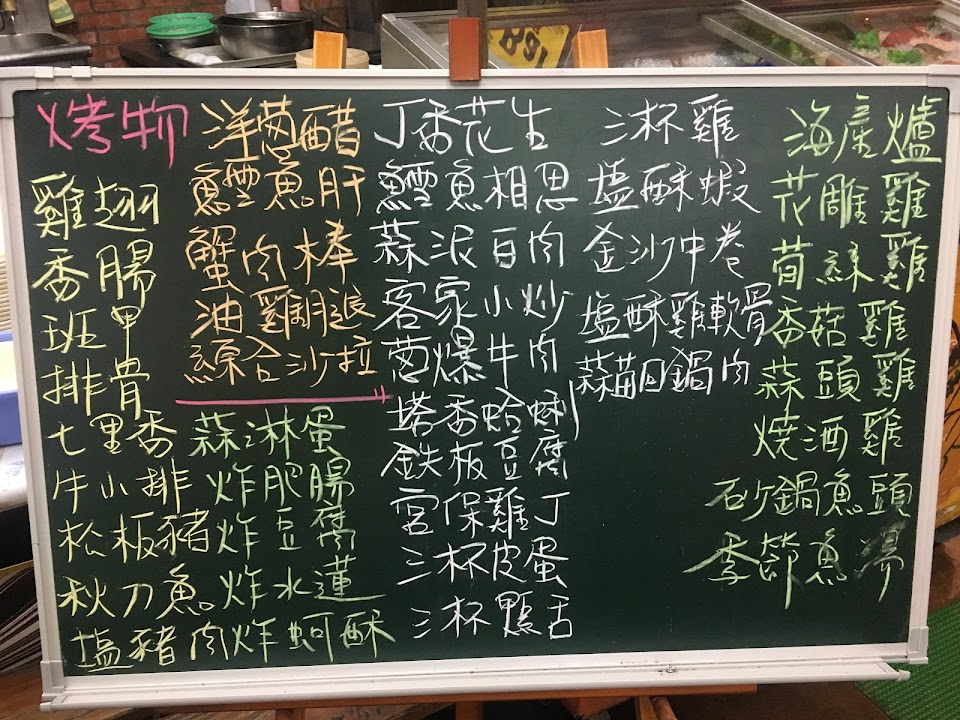 烤物
雞翅
香腸
班甲
排骨
七里香
牛小排
松板豬
秋刀魚
塩豬肉
洋蔥醋
鱈魚肝
蟹肉棒
油雞腿
綜合沙拉
蒜淋蛋
炸肥腸
炸豆腐
炸水蓮
炸蚵酥
丁香花生
鱈魚相思
蒜泥白肉
客家小炒
蔥爆牛肉
塔香蛤蜊
鉄板豆腐
宮保雞丁
三杯皮蛋
三杯鴨舌
三杯雞
塩酥蝦
金沙中卷
塩酥雞軟骨
蒜苗回鍋肉
海產爐
花雕雞
筍絲雞
香菇雞
蒜頭雞
燒酒雞
砂鍋魚頭
季節魚湯